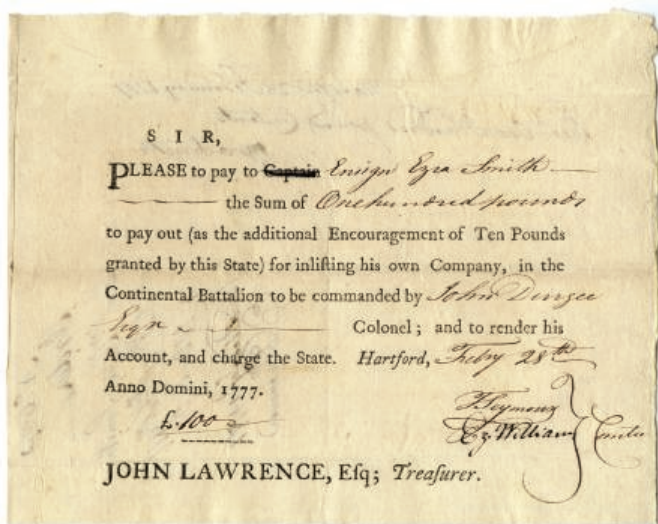 SIR,
PLEASE to pay to Captain Ensign Ezra Smith
the Sum of One hundred pounds
to pay out (as the additional Encouragement of Ten Pounds
granted by this State) for inliſting his own Company, in the
Continental Battalion to be commanded by John Durgee
Esqr Colonel; and to render his
Account, and charge the State. Hartford, Feby 28th
Anno Domini, 1777.
£100
T. Seymour
Williams
JOHN LAWRENCE, Eſq; Treaſurer.